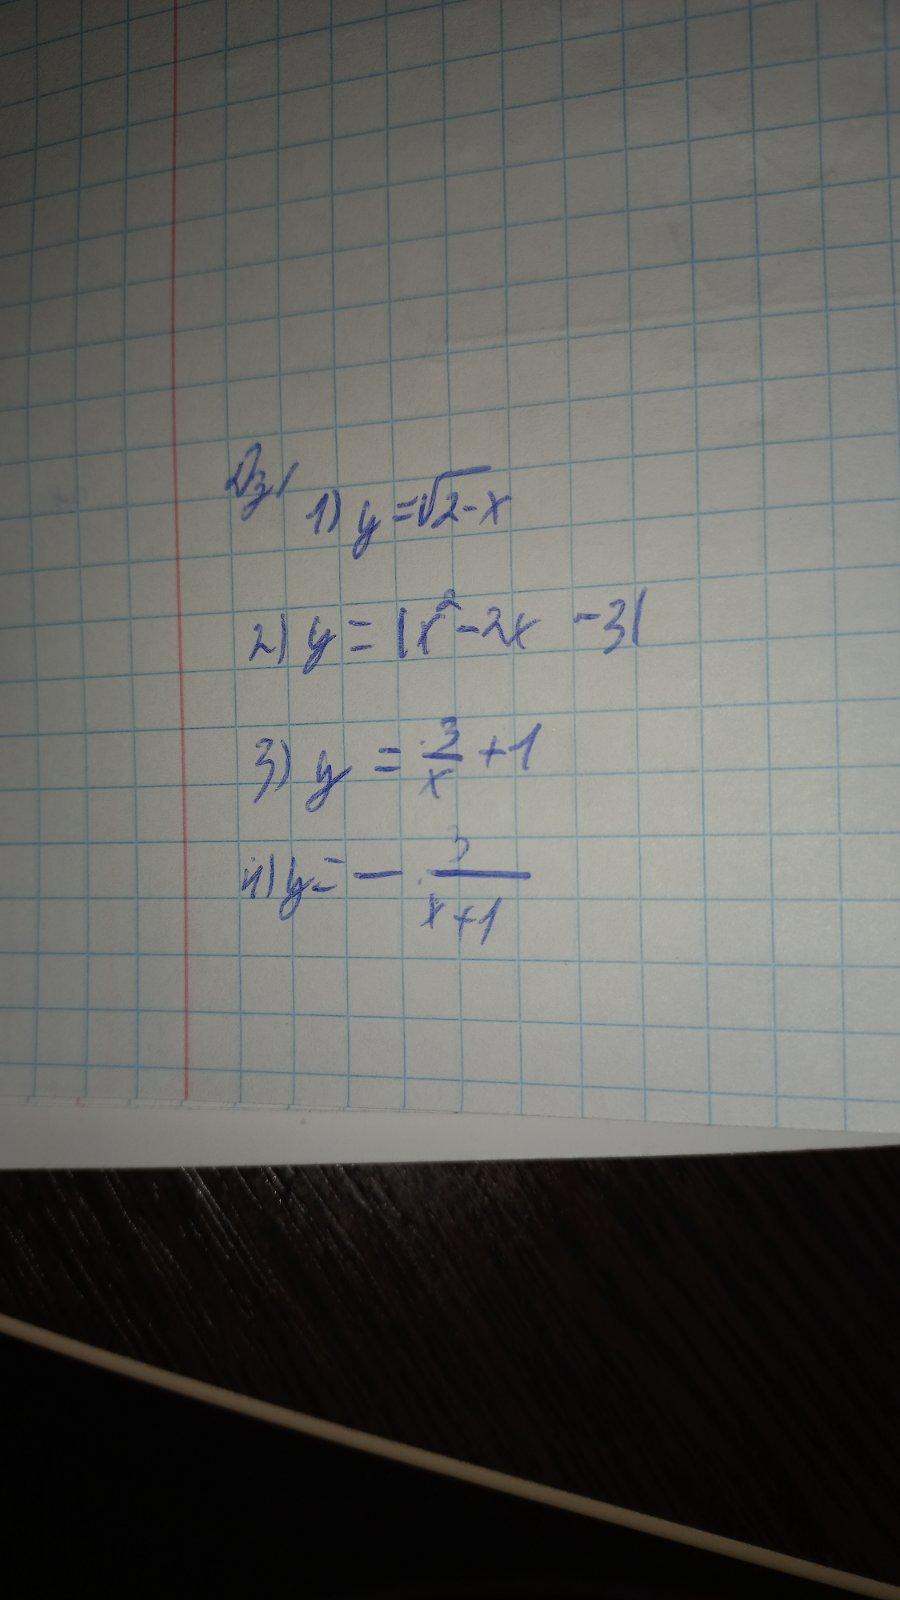 Дз/
1) y = √2-x
2) y = |x² - 2x - 3|
3) y = 3/x + 1
4) y = - 3/(x+1)